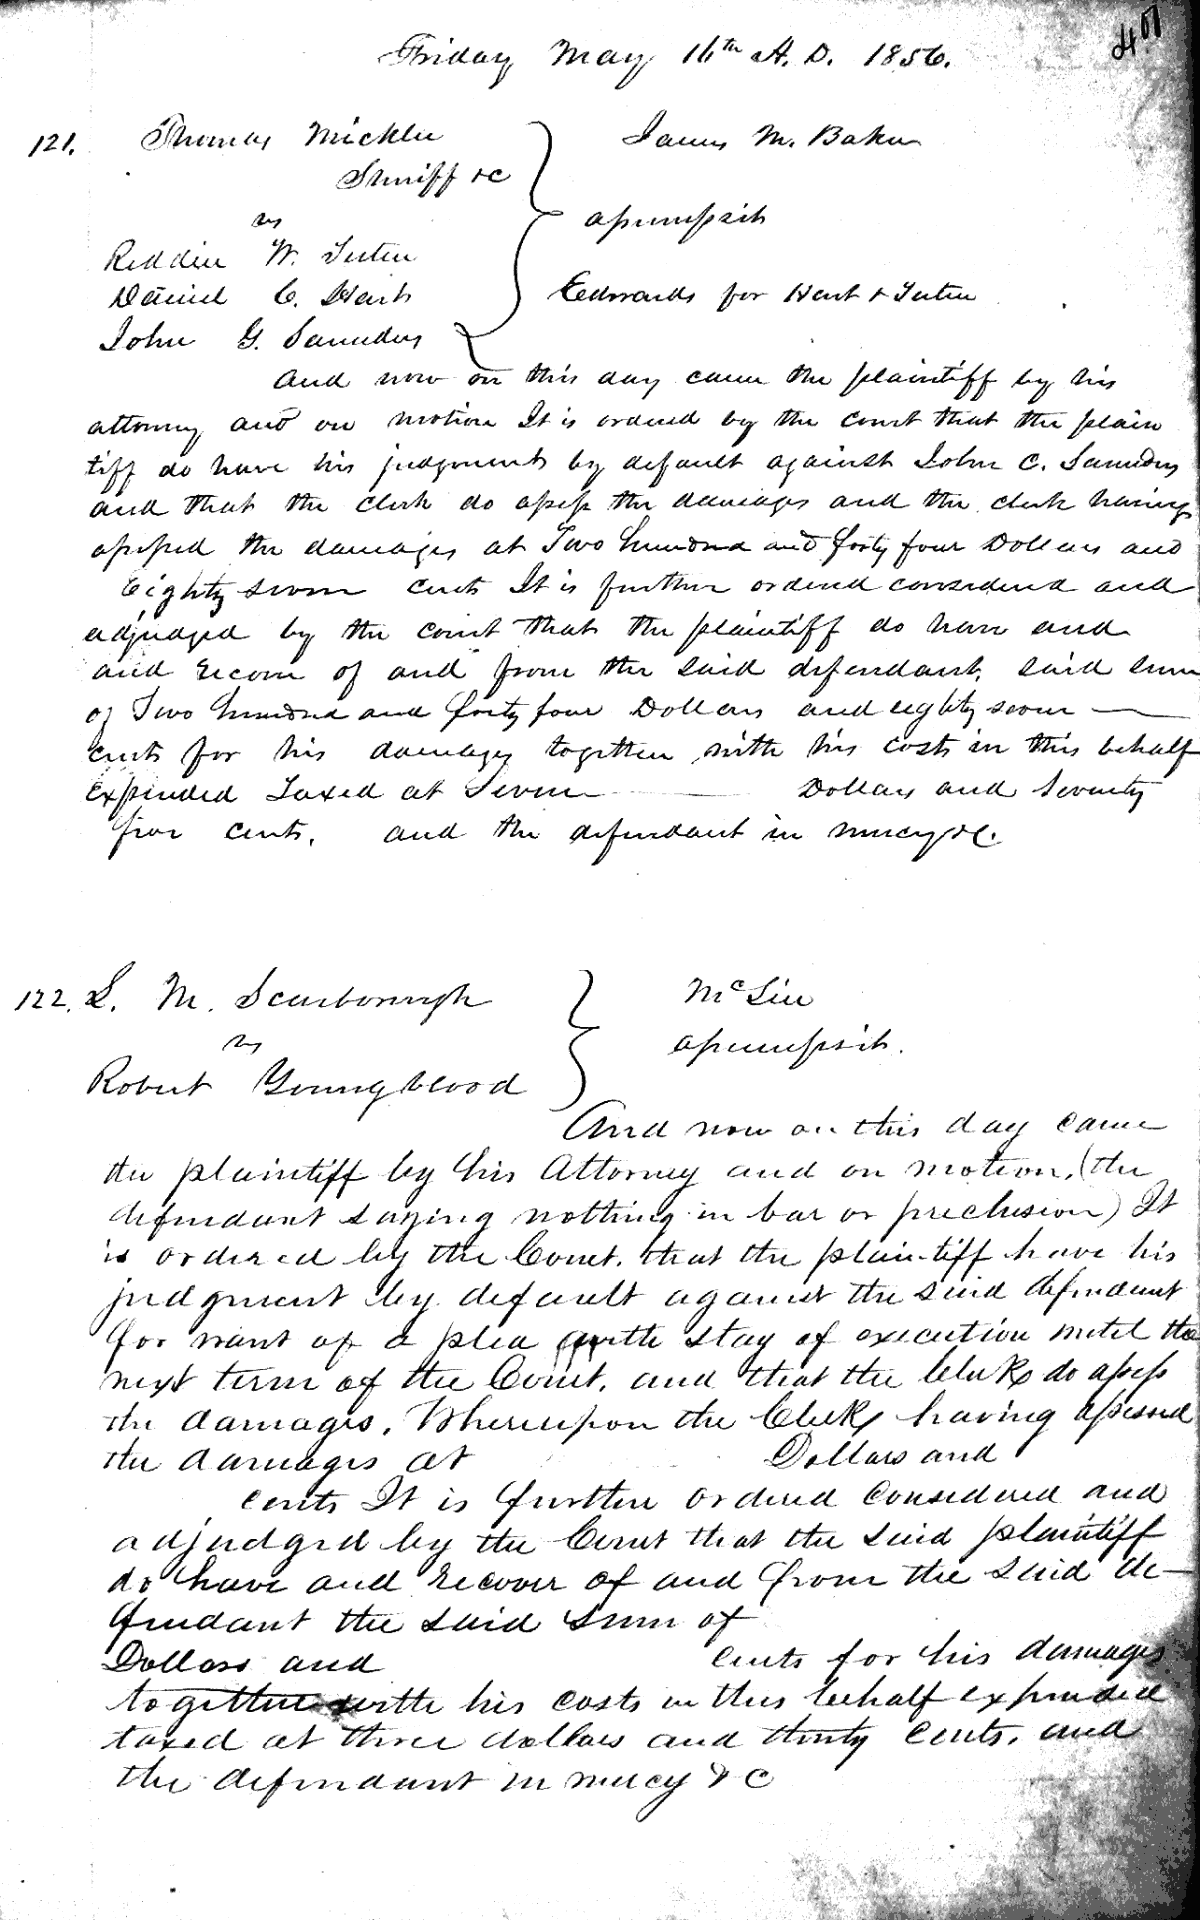 407
Friday May 16th A. D. 1856.
121. Thomas Mickler } James M. Baker
Sheriff &c
vs assumpsit
Reddin W. Tuten
Daniel C. Hart Edwards for Hart & Tuten
John G. Saunders
And now on this day came the plaintiff by his
attorney and on motion It is ordered by the court that the plain
tiff do have his judgment by default against John C. Saunders
and that the clerk do assess the damages and the clerk having
assessed the damages at Two hundred and forty four Dollars and
Eighty seven cents It is further ordered considered and
adjudged by the court that the plaintiff do have and
and recover of and from the said defendant, said sum
of Two hundred and forty four Dollars and eighty seven —
cents for his damages together with his costs in this behalf
expended Taxed at Seven Dollars and Seventy
five cents, and the defendant in mercy &c.
122. S. M. Scarborough } McLin
vs assumpsit.
Robert Youngblood
And now on this day came
the plaintiff by his Attorney and on motion, (the
defendant saying nothing in bar or preclusion) It
is ordered by the Court, that the plaintiff have his
judgment by default against the said defendant
for want of a plea with stay of execution until the
next term of the Court, and that the Clerk do assess
the damages. Whereupon the Clerk having assessed
the damages at Dollars and
cents It is further ordered considered and
adjudged by the Court that the said plaintiff
do have and recover of and from the said de-
fendant the said sum of
Dollars and cents for his damages
together with his costs in this behalf expended
taxed at three dollars and thirty cents, and
the defendant in mercy & c